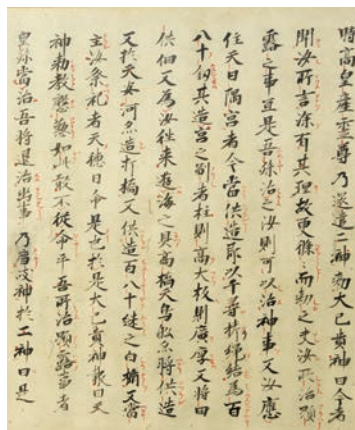 時高皇産霊尊乃還遣二神勅大己貴神曰今者
聞汝所言深有其理故更條而勅之夫汝所治顯
露之事宜是吾孫治之汝則可以治神事又汝應
住天日隅宮者今當供造即以千尋栲縄結為百
八十紐其造宮之制者柱則高大板則廣厚又将田
供佃又為汝往来遊海之具高橋天鳥船亦将供造
又於天安河亦造打橋又供造百八十縫之白楯又當
主汝祭祀者天穂日命是也於是大己貴神報曰天
神勅教慇懃如此敢不従命乎吾所治顯露事者
皇孫當治吾将退治幽事 乃薦岐神於二神曰是